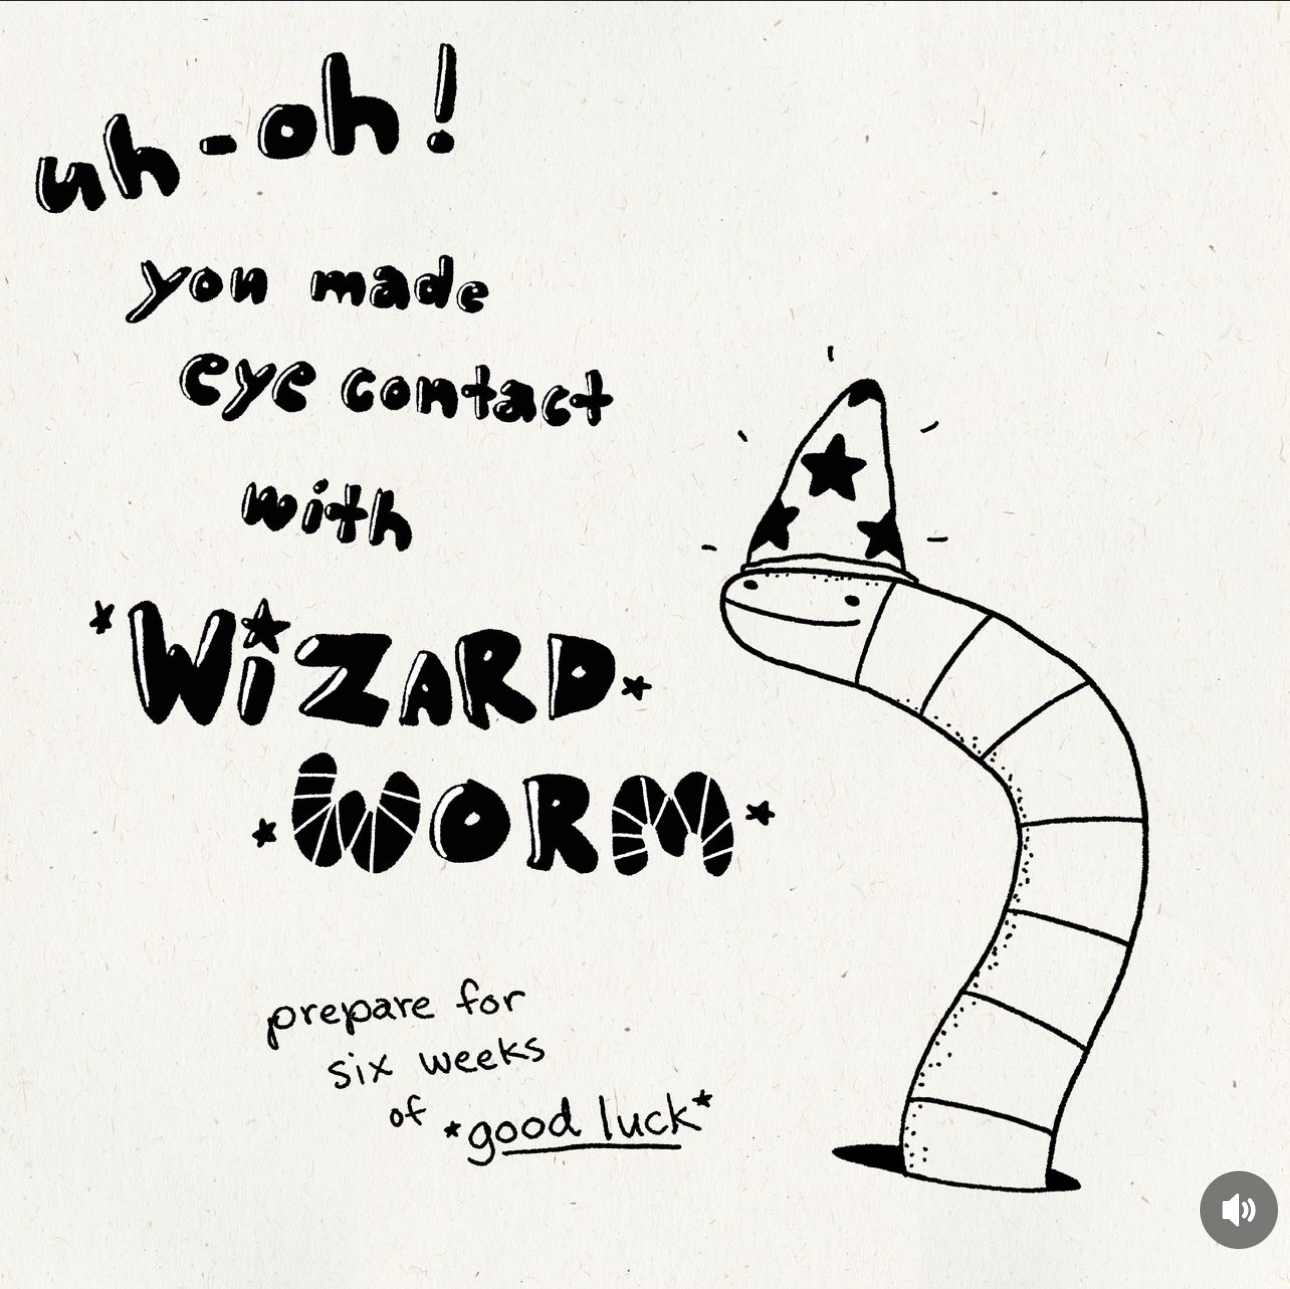 uh-oh!
you made
eye contact
with
*WiZARD*
*WORM*
prepare for
six weeks
of *good luck*